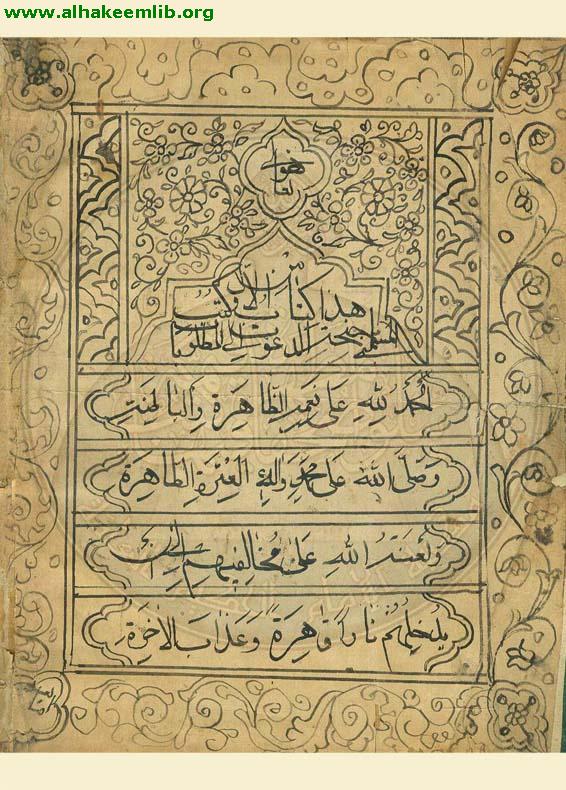 www.alhakeemlib.org
هو
تعالى
هذا كتاب من الاول
المسمى
الدعوات المطلوبات
الحَمدُ لِلهِ عَلى نِعَمِهِ الظّاهِرَةِ وَالباطِنَةِ
وَصَلَّى اللهُ عَلى مُحَمَّدٍ وَالِهِ العِترَةِ الطّاهِرَةِ
وَلَعنَةُ اللهِ عَلى مُخالِفيهِم
يُدخِلُهُم نارًا وَعَذابَ الاخِرَةِ